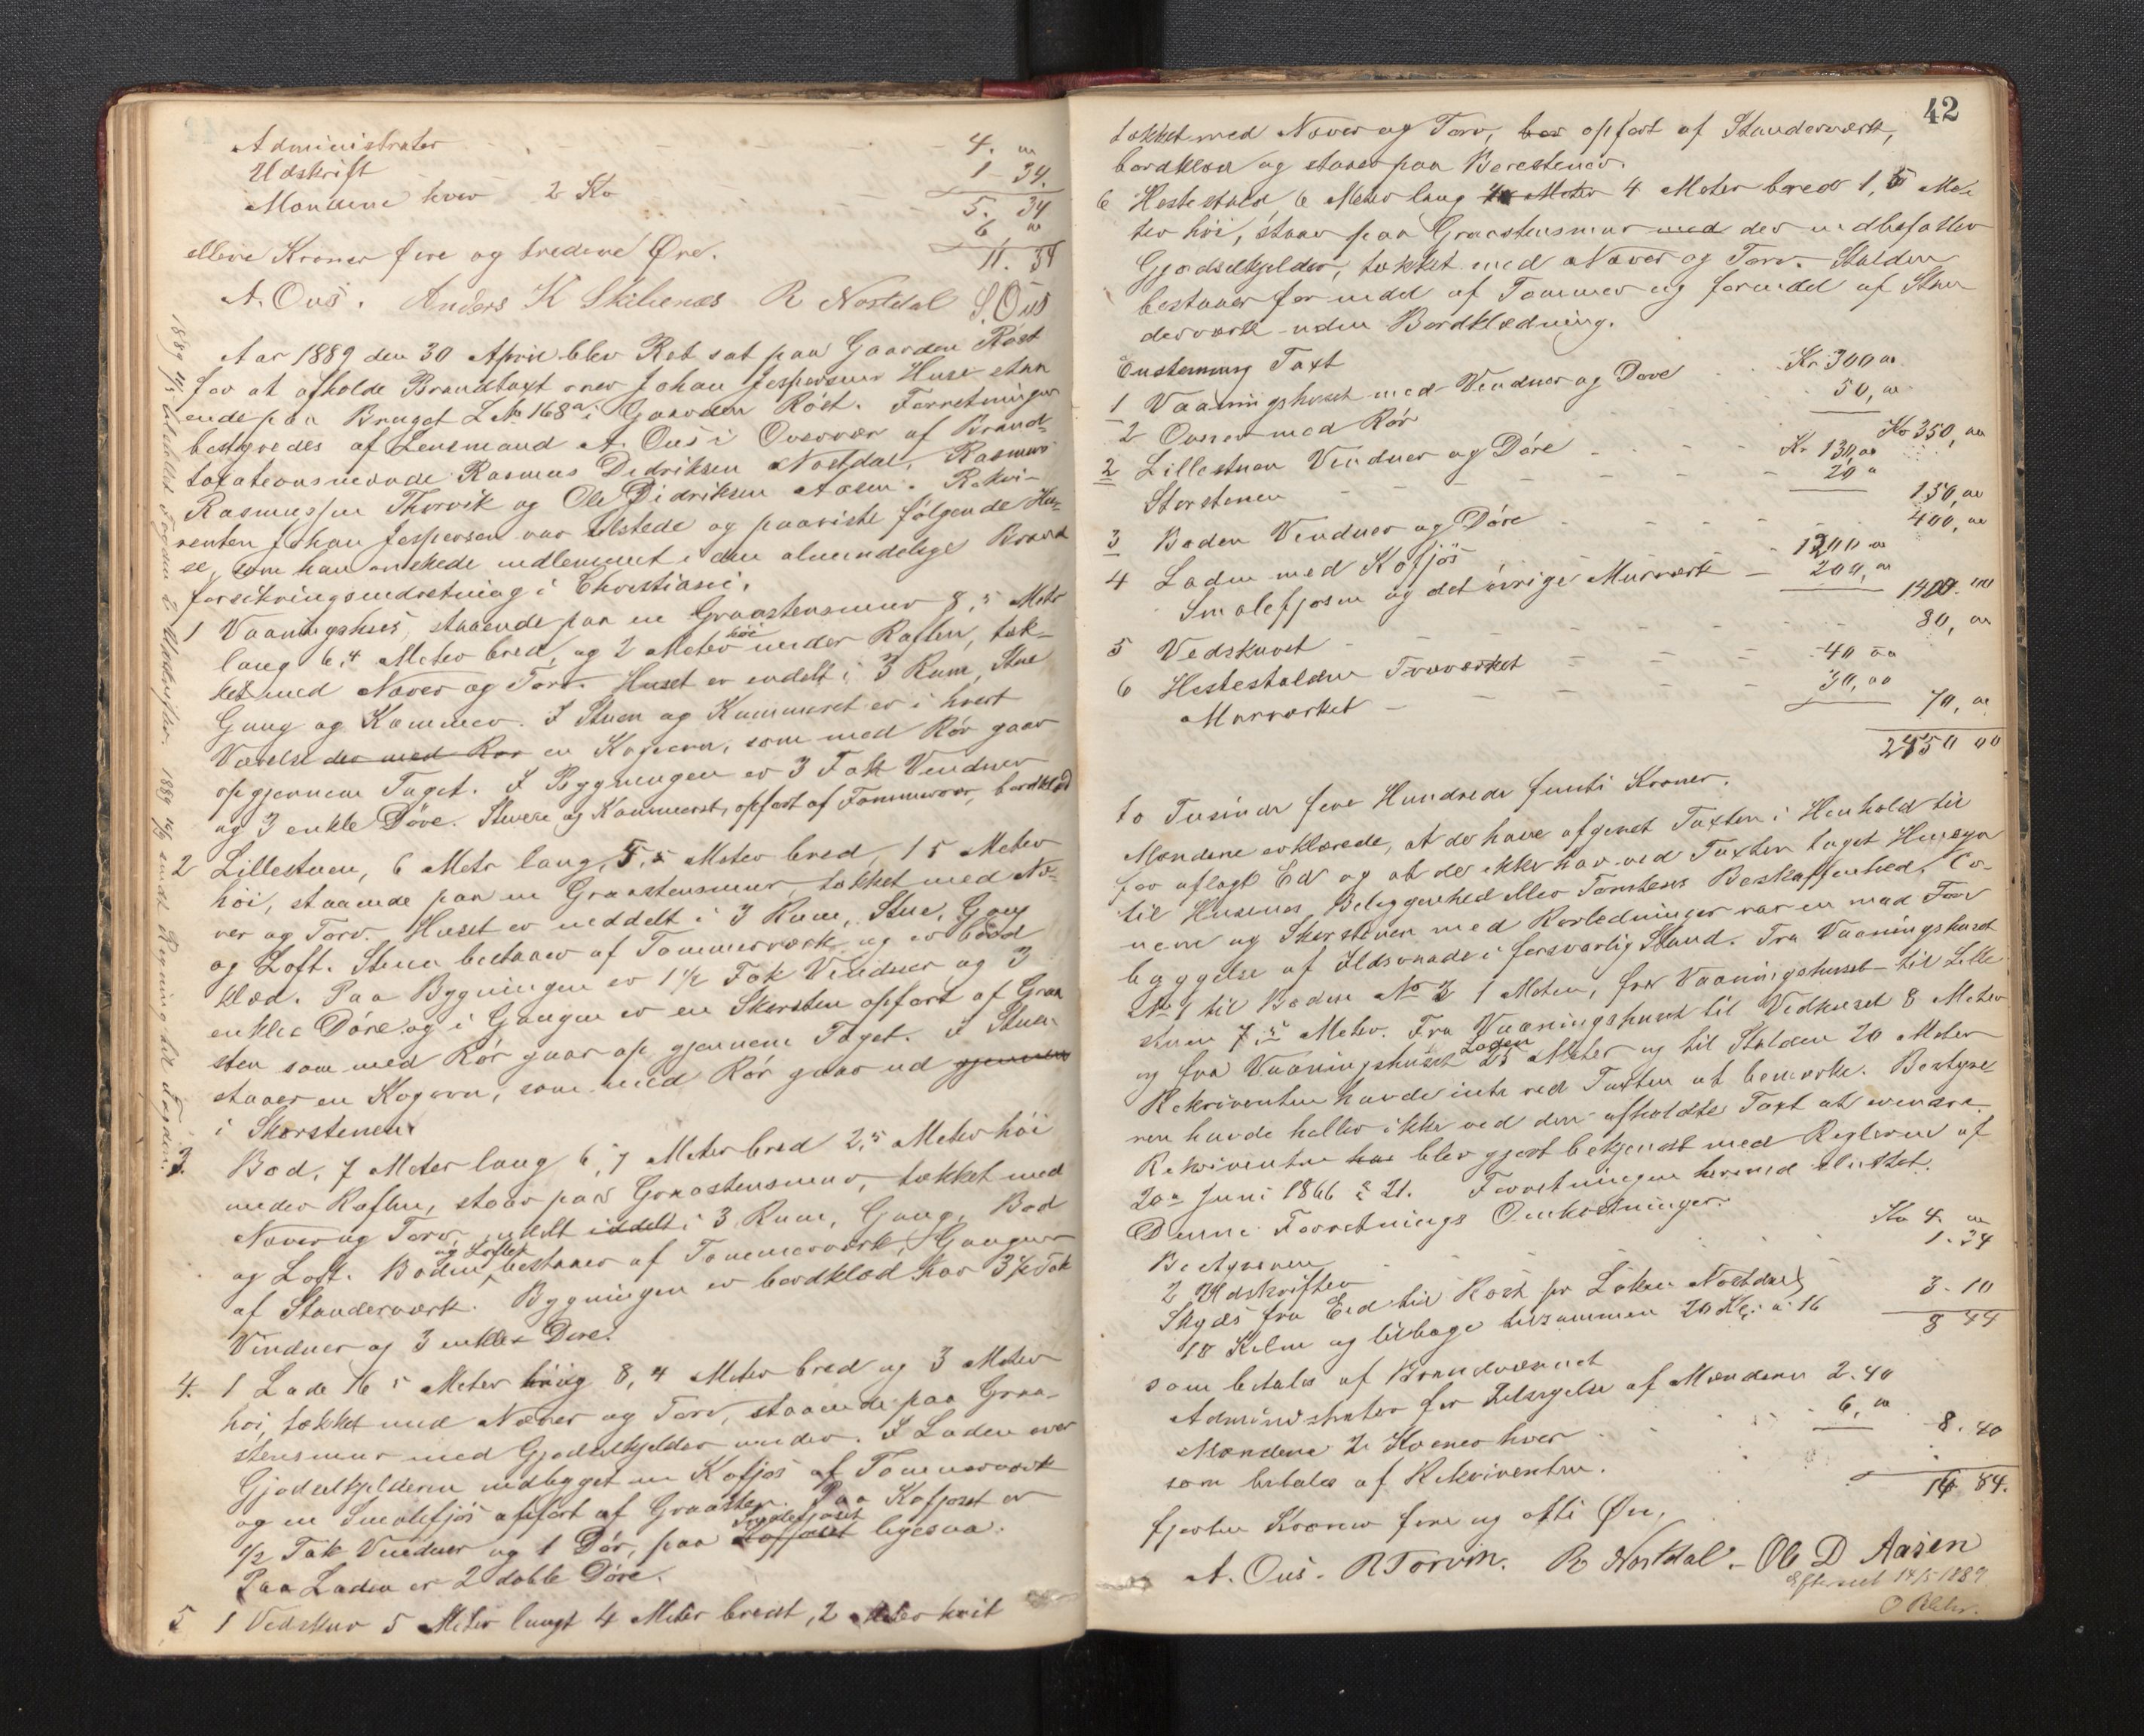 Administrator - - - - 4. "
Udskrift 1 - 34.
Mændene hver 2 Kr
5. 34
6 "
elleve Kroner fire og tredive Øre. 11. 34
A. Ous. Anders K Skibenæs R Nostdal S. Ous
Aar 1889 den 30 April blev Ret sat paa Gaarden Röst
for at afholde Brandtaxt over Johan Jespersens Huse staa
ende paa Bruget L.No 168a i Gaarden Röst. Forretningen
bestyredes af Lensmand A. Ous i Overvær af Brand-
taxationsmænde Rasmus Didriksen Nostdal, Rasmus
Rasmussen Thorvik og Ole Didriksen Aasen. Rekvi-
renten Johan Jespersen var tilstede og paaviste følgende Hu-
se, som han ønskede indlemmet i den almindelige Brand
forsikringsindretning i Christiania.
1 Vaaningshus, staaende paa en Graastensmur 8,5 Meter
lang 6,4 Meter bred, og 2 Meter höi under Raften, tæk-
ket med Næver og Torv. Huset er inddelt i 3 Rum, Stue
Gang og Kammer. I Stuen og Kammeret er i hvert
Værelse der med Rør en Kogeovn, som med Rör gaar
op gjennem Taget. I Bygningen er 3 Fak Vinduer
og 3 enkle Döre. Stuen og Kammeret, opført af Tømmer, bordklæd
2 Lillestuen, 6 Meter lang, 5,5 Meter bred, 1 5 Meter
höi, staaende paa en Graastensmur, tækket med Næ-
ver og Torv. Huset er inddelt i 3 Rum, Stue, Gang
og Loft. Stuen bestaaer af Tømmerværk og er bord
klæd. Paa Bygningen er 1 1/2 Fak Vinduer og 3
enkle Döre og i Gangen er en Skorsten opført af Graa
sten som med Rör gaar op gjennem Taget. I Stuen
staaer en Kogeovn, som med Rör gaar ud gjennem
i Skorstenen.
3. Bod, 7 Meter lang 6,7 Meter bred 2,5 Meter höi
under Raften, staar paa Graastensmur, tækket med
Næver og Torv, inddelt i 3 Rum, Gang, Bod
og Loft. Boden og Loftet bestaaer af Tømmerværk, Gangen
af Standerværk. Bygningen er bordklæd har 3 1/2 Fak
Vinduer og 3 enkle Døre.
4. 1 Lade 16 5 Meter lang 8,4 Meter bred og 3 Meter
höi, tækket med Næver og Torv, staaende paa Graa-
stensmur med Gjødselkjelder under. I Laden over
Gjødselkjelderen indbygget en Kofjös af Tømmerværk
og en Smalefjös opført af Graasten. Paa Kofjoset er
1/2 Fak Vinduer og 1 Dör, paa Kofjoset Smalefjoset ligesaa.
Paa Laden er 2 doble Döre.
5 1 Vedskur 5 Meter langt 4 Meter bredt, 2 Meter höit
42
tækket med Næver og Torv, opført af Standerværk,
bordklæd og staaer paa
6 Hestestald 6 Meter lang 4 Meter bred 1,5 Me-
ter höi, staar paa Graastensmur med der indbefatter
Gjødselkjelder, tækket med Næver og Torv. Stalden
bestaaer for en del af Tømmer og for en del af Stan
derværk uden Bordklædning.
Enstemmig Taxt
1 Vaaningshuset med Vinduer og Døre - - Kr 300 00
2 Ovner med Rör 50, 00
Kr 350, 00
2 Lillestuen Vinduer og Döre - - - - Kr. 130, 00
Skorstenen - - - - 20 "
150, 00
3 Boden Vinduer og Döre - - - - 400, 00
4 Laden med Kofjös - - - - 1200 00
Smalefjosen og det övrige Murværk - 200, 00
1400. 00
5 Vedskuret - - - - 80, 00
6 Hestestalden Træværket - - - 40 00
Murværket - - - - 30, 00
70, 00
2450 00
to Tusinde fire Hundrede femti Kroner.
Mændene erklærede, at de have afgivet Taxten i Henhold til
før aflagt Ed og at de ikke har ved Taxten taget Hensyn
til Husenes Beliggenhed eller Tomtens Beskaffenhed. Ov-
nene og Skorstenen med Rørledninger var en mod For
byggelse af Ildsvaade i forsvarlig Stand. Fra Vaaningshuset
No 1 til Boden No 3 1 Meter, fra Vaaningshuset til Lille
stuen 7,5 Meter. Fra Vaaningshuset til Vedhuset 8 Meter
og fra Vaaningshuset Laden 25 Meter og til Stalden 20 Meter
Rekvirenten havde intet ved Taxten at bemærke. Bestyre-
ren havde heller ikke ved den afholdte Taxt at erindre.
Rekvirenten blev gjort bekjendt med Reglerne af
20de Juni 1866 § 21. Forretningen hermed sluttet.
Denne Forretnings Omkostninger:
Bestyreren Kr 4. 00
2 Udskrifter 1. 34
Skyds fra Eid til Röst pr Løken Nostdal
10 Kilm og tilbage tilsammen 20 Kl. a 16 3 - 10
8 44
som betales af Brandvæsenet
Administrator for Tilsigelse af Mændene 2. 40
Mændene 2 Kroner hver - - - 6, 00
8. 40
som betales af Rekvirenten.
16 84.
fjorten Kroner fire og otti Øre,
A. Ous - R Torvik. R Nostdal - Ole D Aasen
Efterseet 14/5 1889